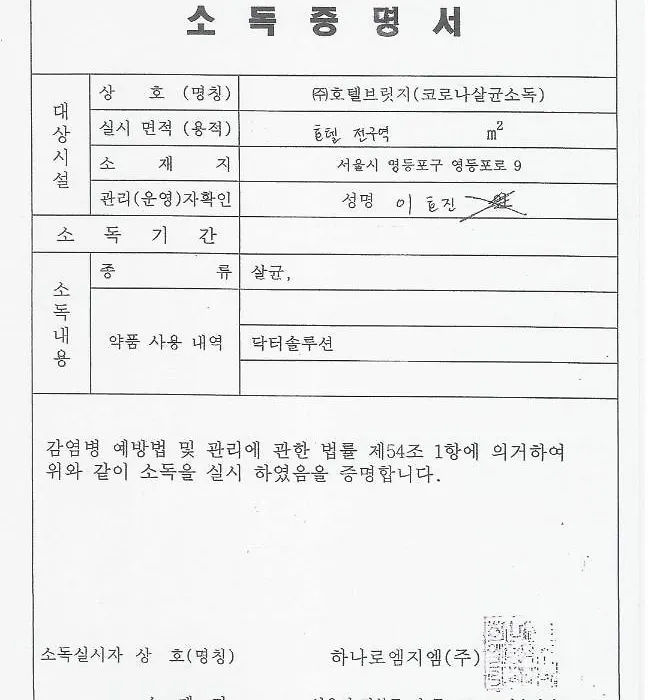 소 독 증 명 서
대상시설
상 호 (명칭) ㈜호텔브릿지(코로나살균소독)
실시 면적 (용적) 호텔 전구역 m²
소 재 지 서울시 영등포구 영등포로 9
관리(운영)자확인 성명 이 효진
소 독 기 간
소독내용
종 류 살균,
약품 사용 내역 닥터솔루션
감염병 예방법 및 관리에 관한 법률 제54조 1항에 의거하여
위와 같이 소독을 실시 하였음을 증명합니다.
소독실시자 상 호(명칭) 하나로엠지엠(주)